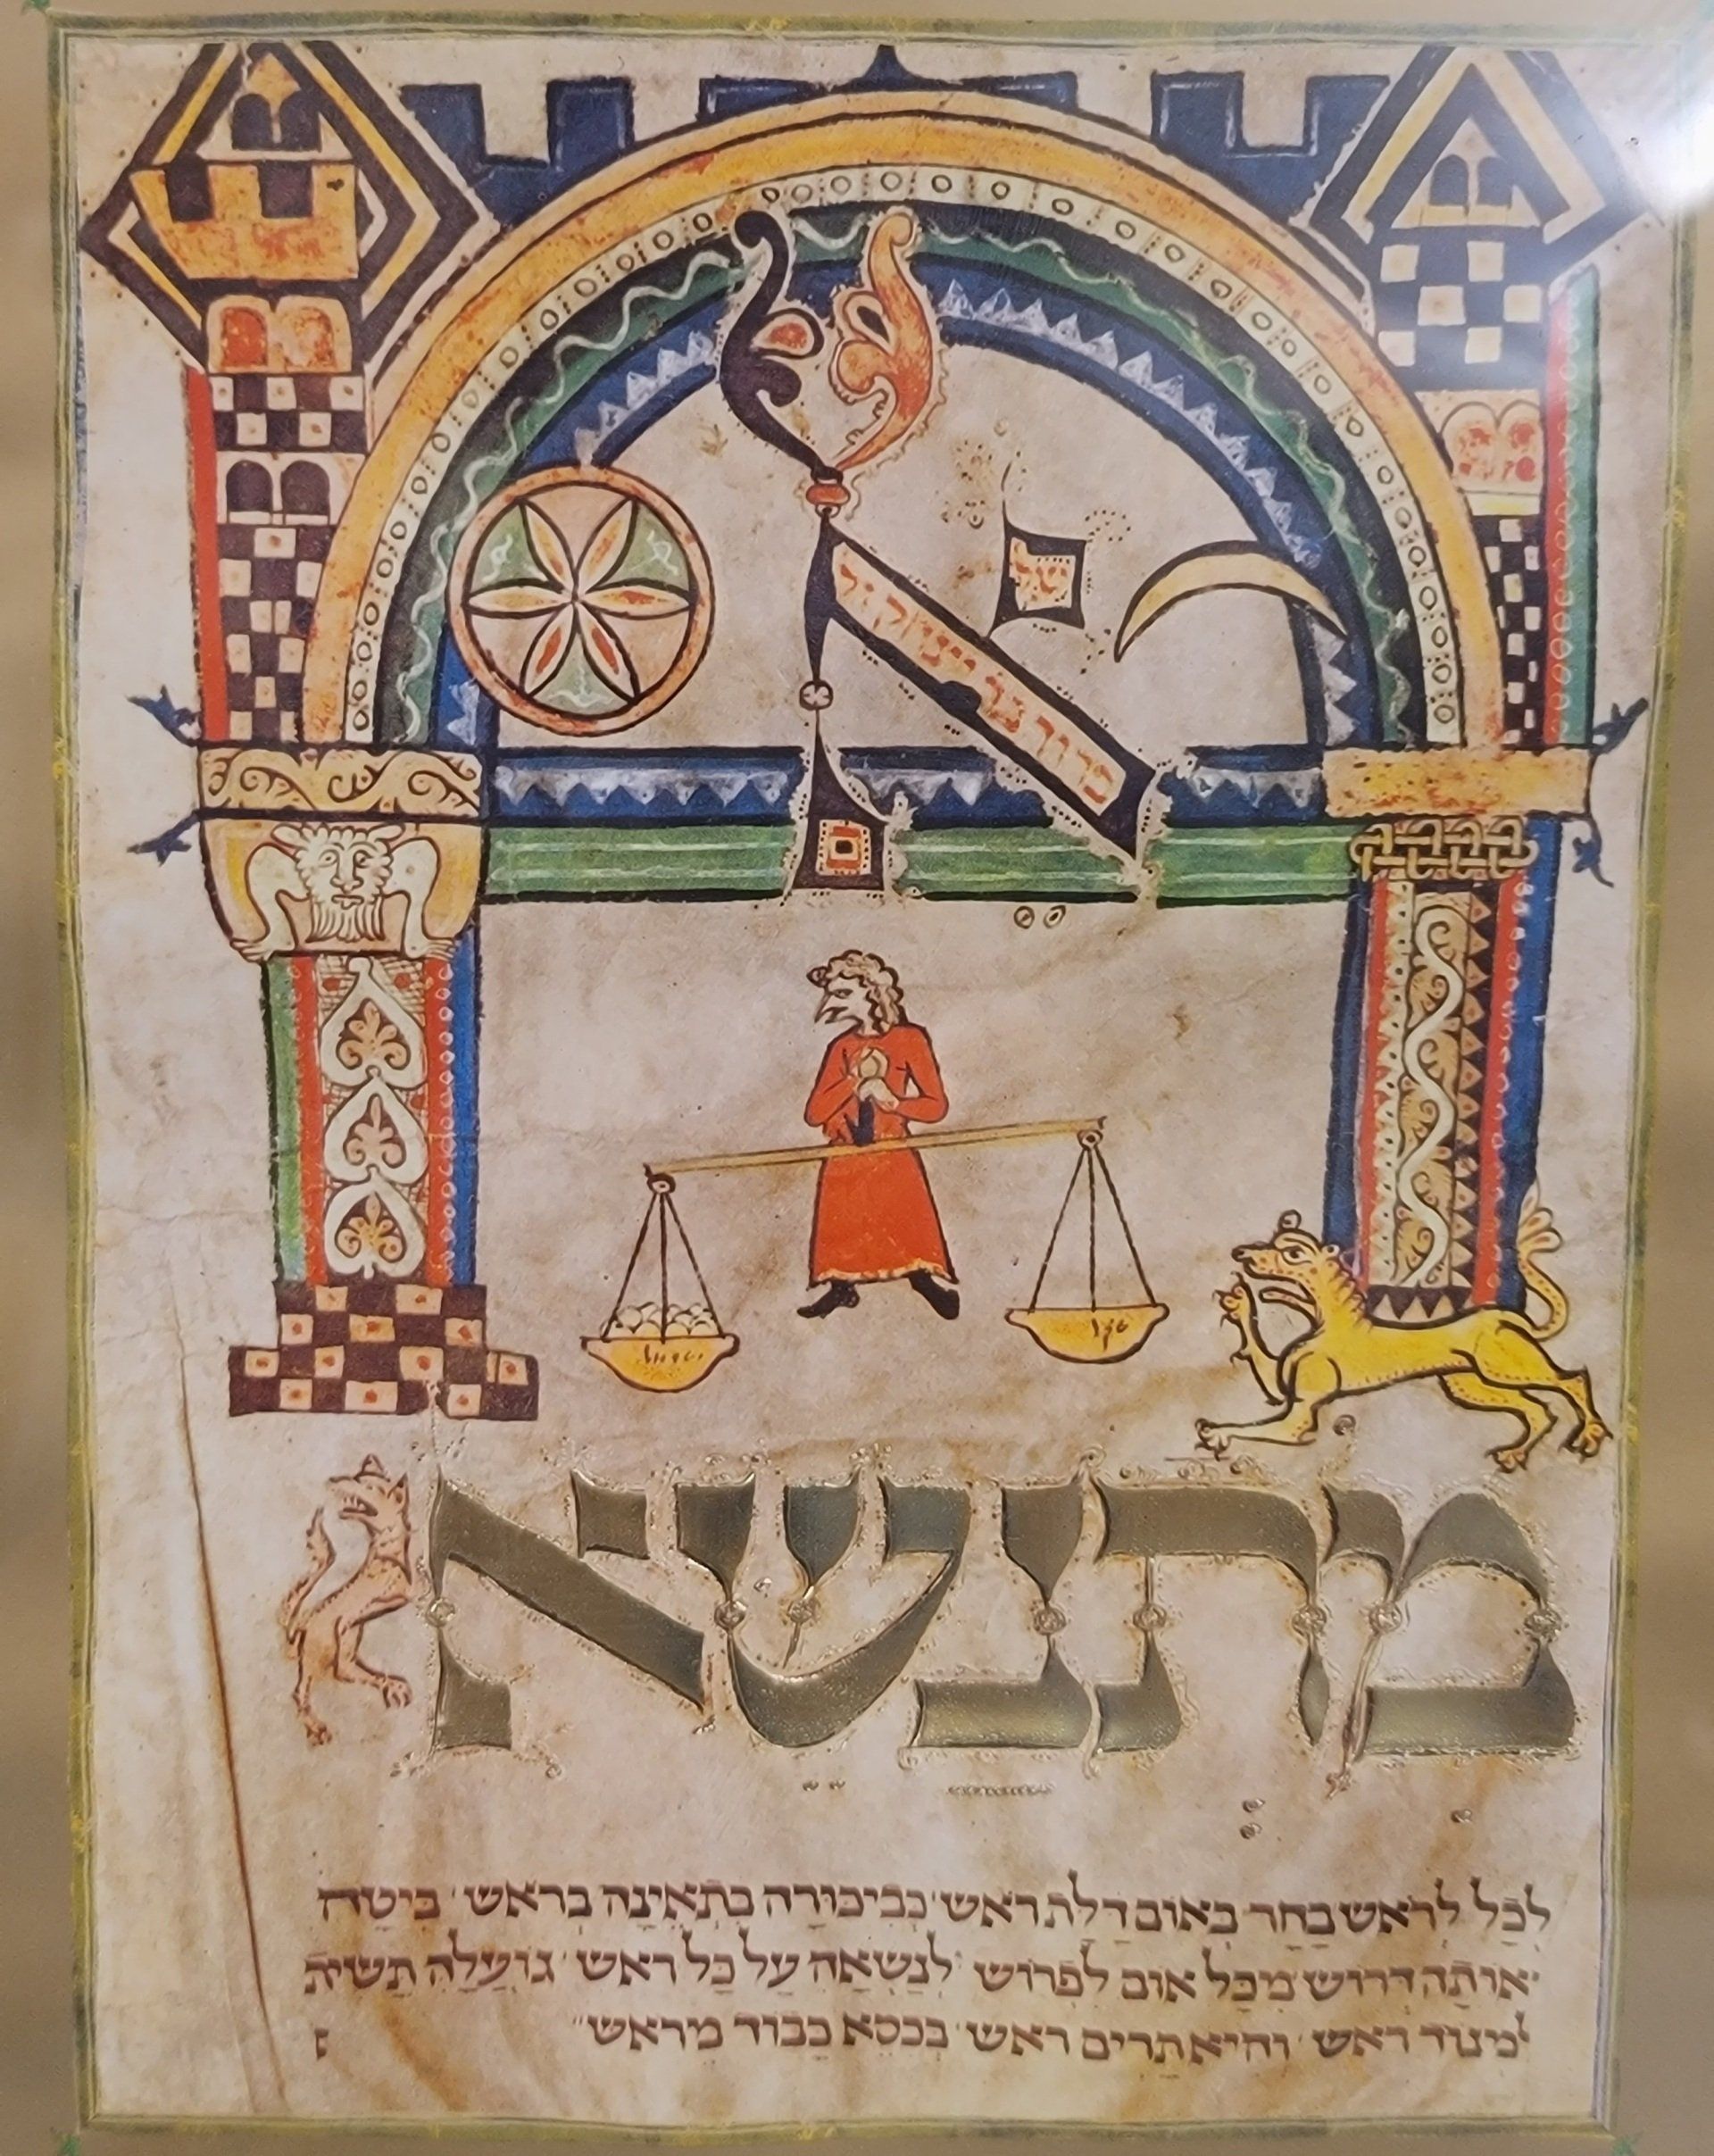 אל
שקל
ישראל
מתנשא
לכל לראש בחר באום דלת ראש כביכורה בתאינה בראש ביטח
אותה דרוש מכל אום לפרוש לנשאה על כל ראש גועלה תשית
למנוד ראש והיא תרים ראש בכסא כבוד מראש